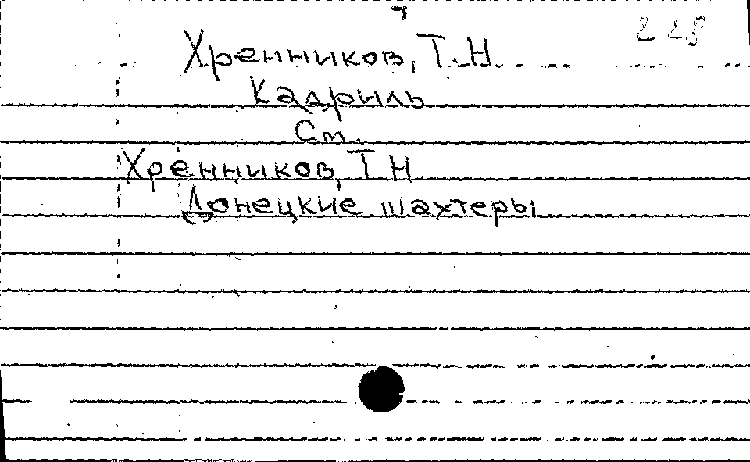 228
Хренников, Т.Н.
Кадриль
См.
Хренников, Т.Н
Донецкие шахтеры